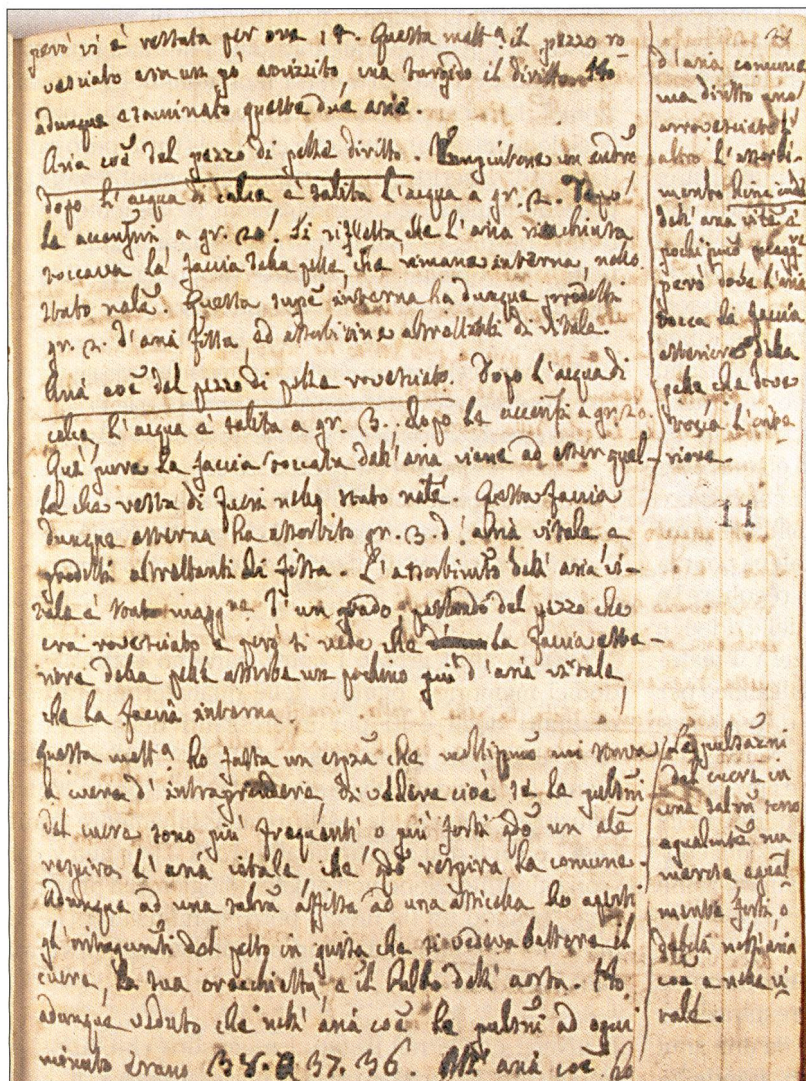 però vi è restata per ore 18. Questa matt.ª il pezzo ro-
vesciato era un pò avvizzito, ma turgido il diritto. Ho
adunque esaminato queste due arie.
Aria coē del pezzo di pelle diritto. un eudrē
dopo l'acqua di calce è salita l'acqua a gr. 2. Dopo
le accensīni a gr. 20. Si rifletta che l'aria rinchiusa
toccava la faccia della pelle, che rimane interna, nello
stato nālē. Questa supē interna ha dunque prodotti
gr. 2. d'aria fissa, ed assorbitine altrettanti di vitale.
Aria coē del pezzo di pelle rovesciato. Dopo l'acqua di
calce, l'acqua è salita a gr. 3. dopo le accensī a gr. 20.
Qui pure la faccia toccata dall'aria viene ad esser quel-
la che resta di fuori nello stato nālē. Questa faccia
dunque esterna ha assorbito gr. 3. d'aria vitale e
prodotti altrettanti di fissa. L'assorbimēto dell'aria vi-
tale è stato magg.re d'un grado, parlando del pezzo che
era rovesciato e però si vede, che la faccia este-
riore della pelle assorbe un pochino più d'aria vitale
che la faccia interna.
Questa matt.ª ho fatta un espzā che moltissimo mi stava
a cuore d'intraprendere, di vedere cioè se le pulsnī
del cuore sono più frequenti o più forti qdō un alē
respira l'aria vitale, che qdō respira la comune.
Adunque ad una salrā affissa ad una assicella ho aperti
gl'integumēti del petto in guisa che si vedeva battere il
cuore, la sua orecchietta e il bulbo dell'aorta. Ho
adunque veduto che nell'aria coē le pulsnī ad ogni
minuto erano 38. 37. 36. All'aria coē ho
d'aria comune
ma diritto uno
arrovesciato l'
altro l'assorbi-
mento
dell'aria vitē è
pochissimō magg.re
però dove l'aria
tocca la faccia
esteriore della
pelle che dove
tocca l'inte-
riore.
11
Le pulsazīni
del cuore in
una salrā sono
egualmtē nu
merose egual
mente forti, o
deboli nell'aria
coē e nella vi
tale.